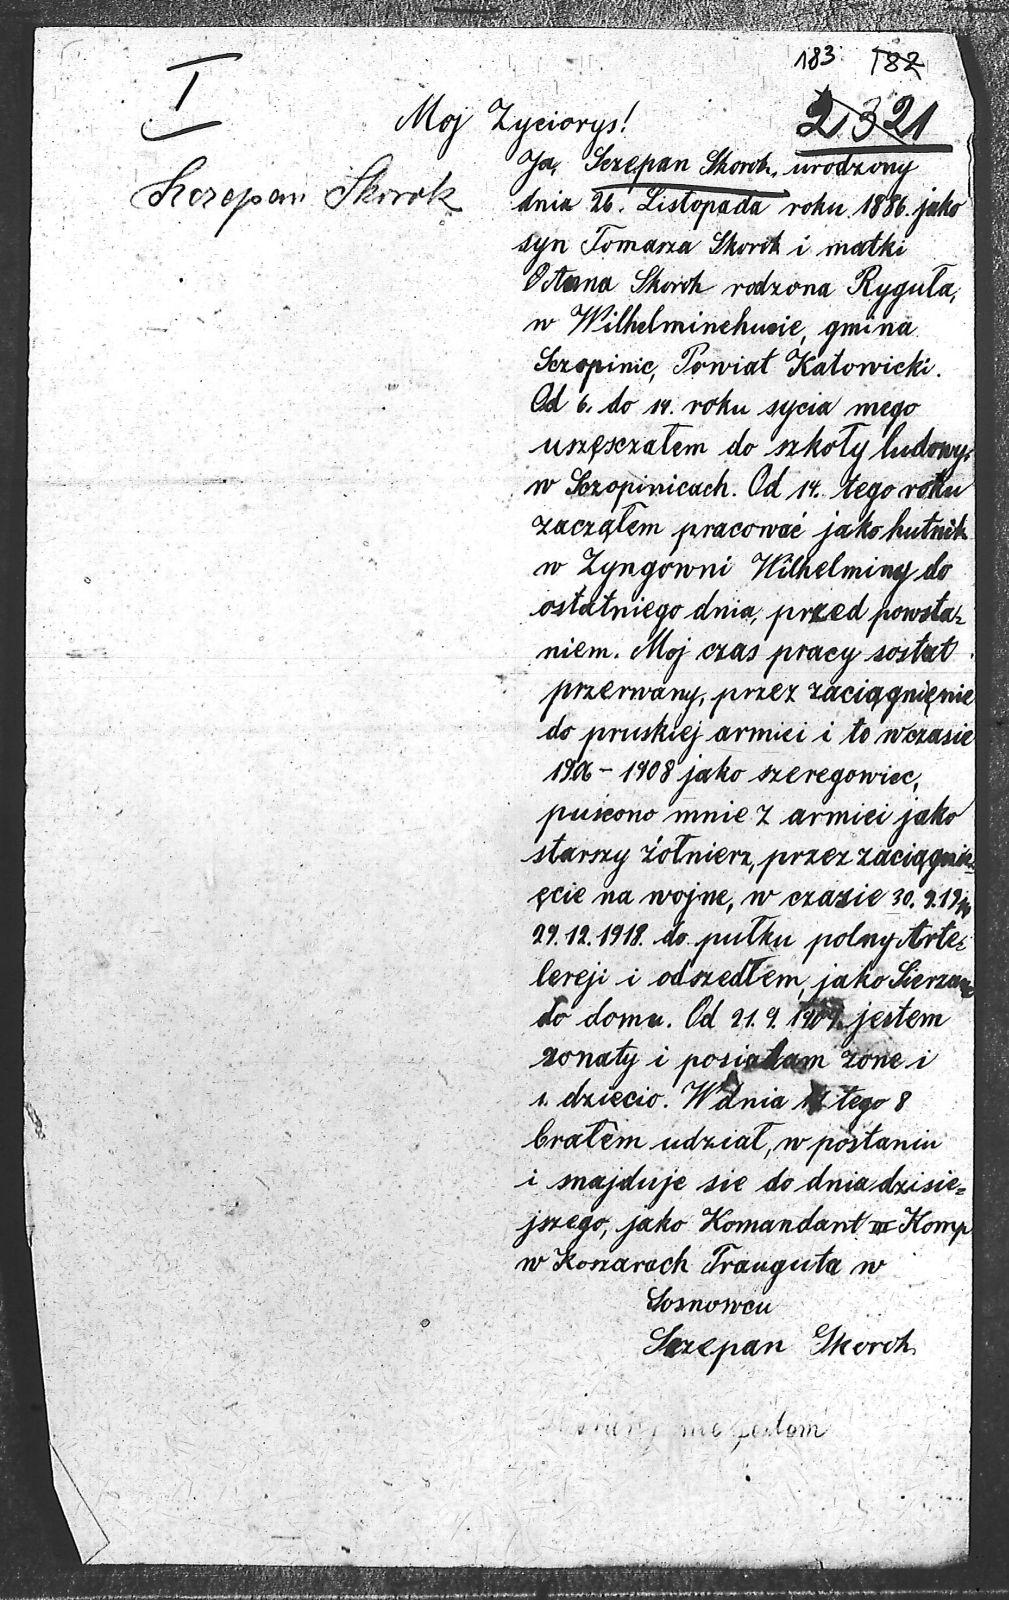 183 182
I
2321
Moj Zyciorys!
Szczepan Skorok
Ja, Sczepan Skoroh, urodzony
dnia 26. Listopada roku 1886. jako
syn Tomasza Skoroh i matki
Skoroh rodzona Ryguła,
w Wilhelminehucie, gmina
Sczopinic, Powiat Katowicki.
Od 6. do 14. roku sycia mego
uszęsczałem do szkoły ludowy,
w Sczopinicach. Od 14. tego roku
zacząłem pracować jako hutnik
w Zyngowni Wilhelminy do
ostatniego dnia, przed powsta=
niem. Moj czas pracy sostał
przerwany, przez zaciągnięnie
do pruskiej armiei i to w czasie
1906 – 1908 jako szeregowiec,
puscono mnie z armiei jako
starszy żołnierz, przez
ęcie na wojne, w czasie 30. 9.
29.12.1918. do pułku polny Arte=
lereji i odszedłem, jako
do domu. Od 21. 9. 1909. jestem
zonaty i posiadam zone i
1. dziecio. W dnia tego 8
brałem udział, w postaniu
i snajduje sie do dnia dzisie=
jszego, jako Komandant III Komp
w Koszarach Trauguta w
Sosnowcu
Sczepan Skoroh.
nie jestem